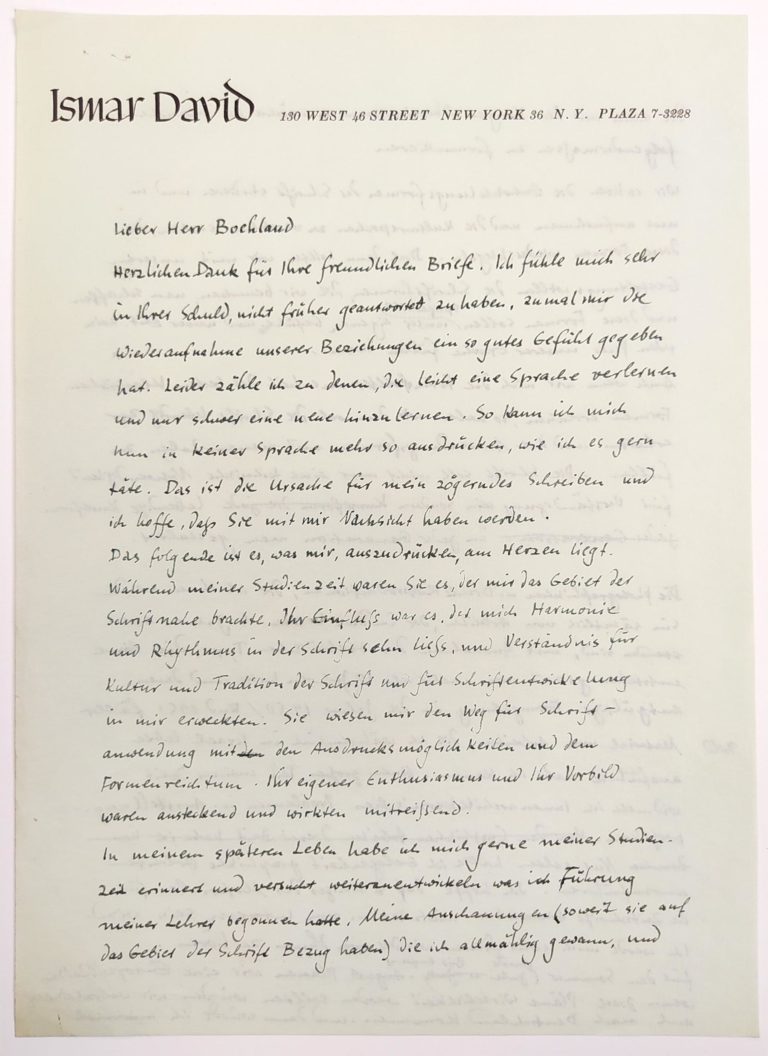 Ismar David 130 WEST 46 STREET NEW YORK 36 N. Y. PLAZA 7-3228
Lieber Herr Bochland
Herzlichen Dank für Ihre freundlichen Briefe. Ich fühle mich sehr
in Ihrer Schuld, nicht früher geantwortet zu haben, zumal mir die
Wiederaufnahme unserer Beziehungen ein so gutes Gefühl gegeben
hat. Leider zähle ich zu denen, die leicht eine Sprache verlernen
und nur schwer eine neue hinzulernen. So kann ich mich
nun in keiner Sprache mehr so ausdrücken, wie ich es gern
täte. Das ist die Ursache für mein zögerndes Schreiben und
ich hoffe, daß Sie mit mir Nachsicht haben werden.
Das folgende ist es, was mir, auszudrücken, am Herzen liegt.
Während meiner Studienzeit waren Sie es, der mir das Gebiet der
Schrift nahe brachte. Ihr Einfluß war es, der mich Harmonie
und Rhythmus in der Schrift sehn ließ, und Verständnis für
Kultur und Tradition der Schrift und für Schriftentwickelung
in mir erweckten. Sie wiesen mir den Weg für Schrift-
anwendung mit den Ausdrucksmöglichkeiten und dem
Formenreichtum. Ihr eigener Enthusiasmus und Ihr Vorbild
waren ansteckend und wirkten mitreißend.
In meinem späteren Leben habe ich mich gerne meiner Studien-
zeit erinnert und versucht weiterzuentwickeln was ich Führung
meiner Lehrer begonnen hatte. Meine Anschauungen (soweit sie auf
das Gebiet der Schrift Bezug haben) die ich allmählig gewann, und